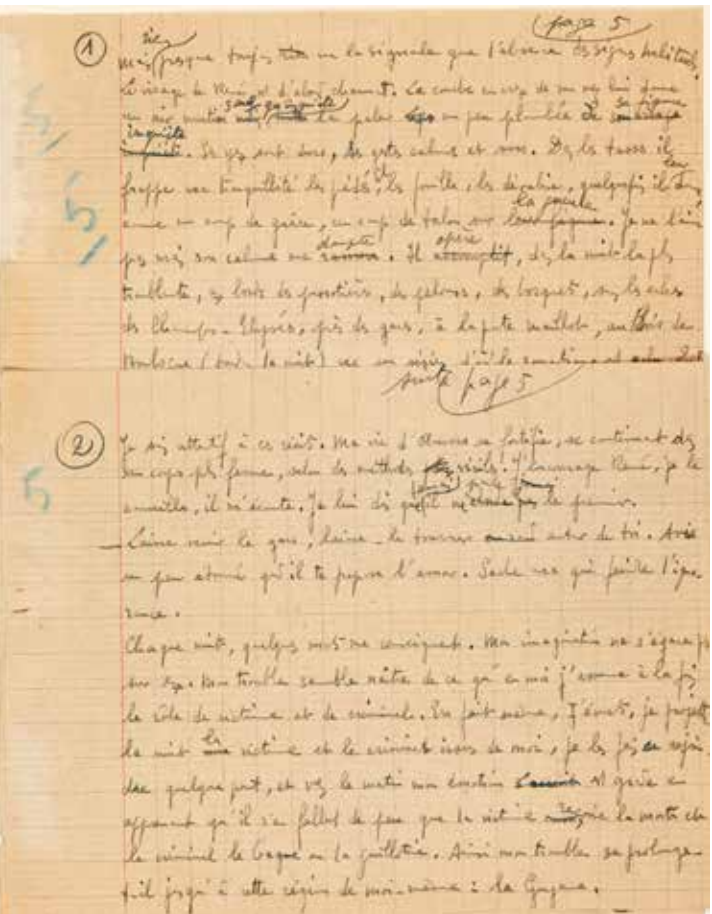 page 5
① rien
Mais presque toujours rien ne la signale que l'absence des signes habituels.
Le visage de René est d'abord charmant. La courbe en creux de son nez lui donne
sauf qu'inquiète sa figure
un air mutin la paleur un peu plombée de son visage
inquiète
inquiète. Ses yeux sont durs, ses gestes calmes et sûrs. Dans les tasses il
il leur
frappe avec tranquillité les pédés, les fouille, les dévalise, quelquefois il
la gueule
comme un coup de grâce, un coup de talon sur. Je ne l'aime
dompte opère
pas mais son calme me. Il accomplit, dans la nuit la plus
troublante, aux bords des pissotières, des pelouses, des bosquets, sous les arbres
des Champs-Elysées, près des gares, à la porte Maillot, au Bois de
Boulogne (toujours la nuit) avec un sérieux d'où le romantisme est exclu
suite page 5
② Je suis attentif à ces récits. Ma vie d'Oeuvres se fortifie, se continuant dans
un corps plus ferme, selon des méthodes viriles. J'encourage René, je le
conseille, il m'écoute. Je lui dis qu'il le premier.
— Laisse venir le gars, laisse-le tourner autour de toi. Aies
un peu étonné qu'il te propose l'amour. Sache user qui feindre l'igno-
rance.
Chaque nuit, quelques mots me renseignent. Mon imagination ne s'égare pas
sur eux. Mon trouble semble naître de ce qu'en moi j'assume à la fois
le rôle de victime et de criminel. En fait même, j'émets, je projette
la nuit la victime et le criminel issus de moi, je les fais se rejoin-
dre quelque part, et vers le matin mon émotion est grande en
apprenant qu'il s'en fallut de peu que la victime reçoive la mort et
le criminel le bagne ou la guillotine. Ainsi mon trouble se prolonge-
t-il jusqu'à cette région de moi-même : la Guyane.
5
5